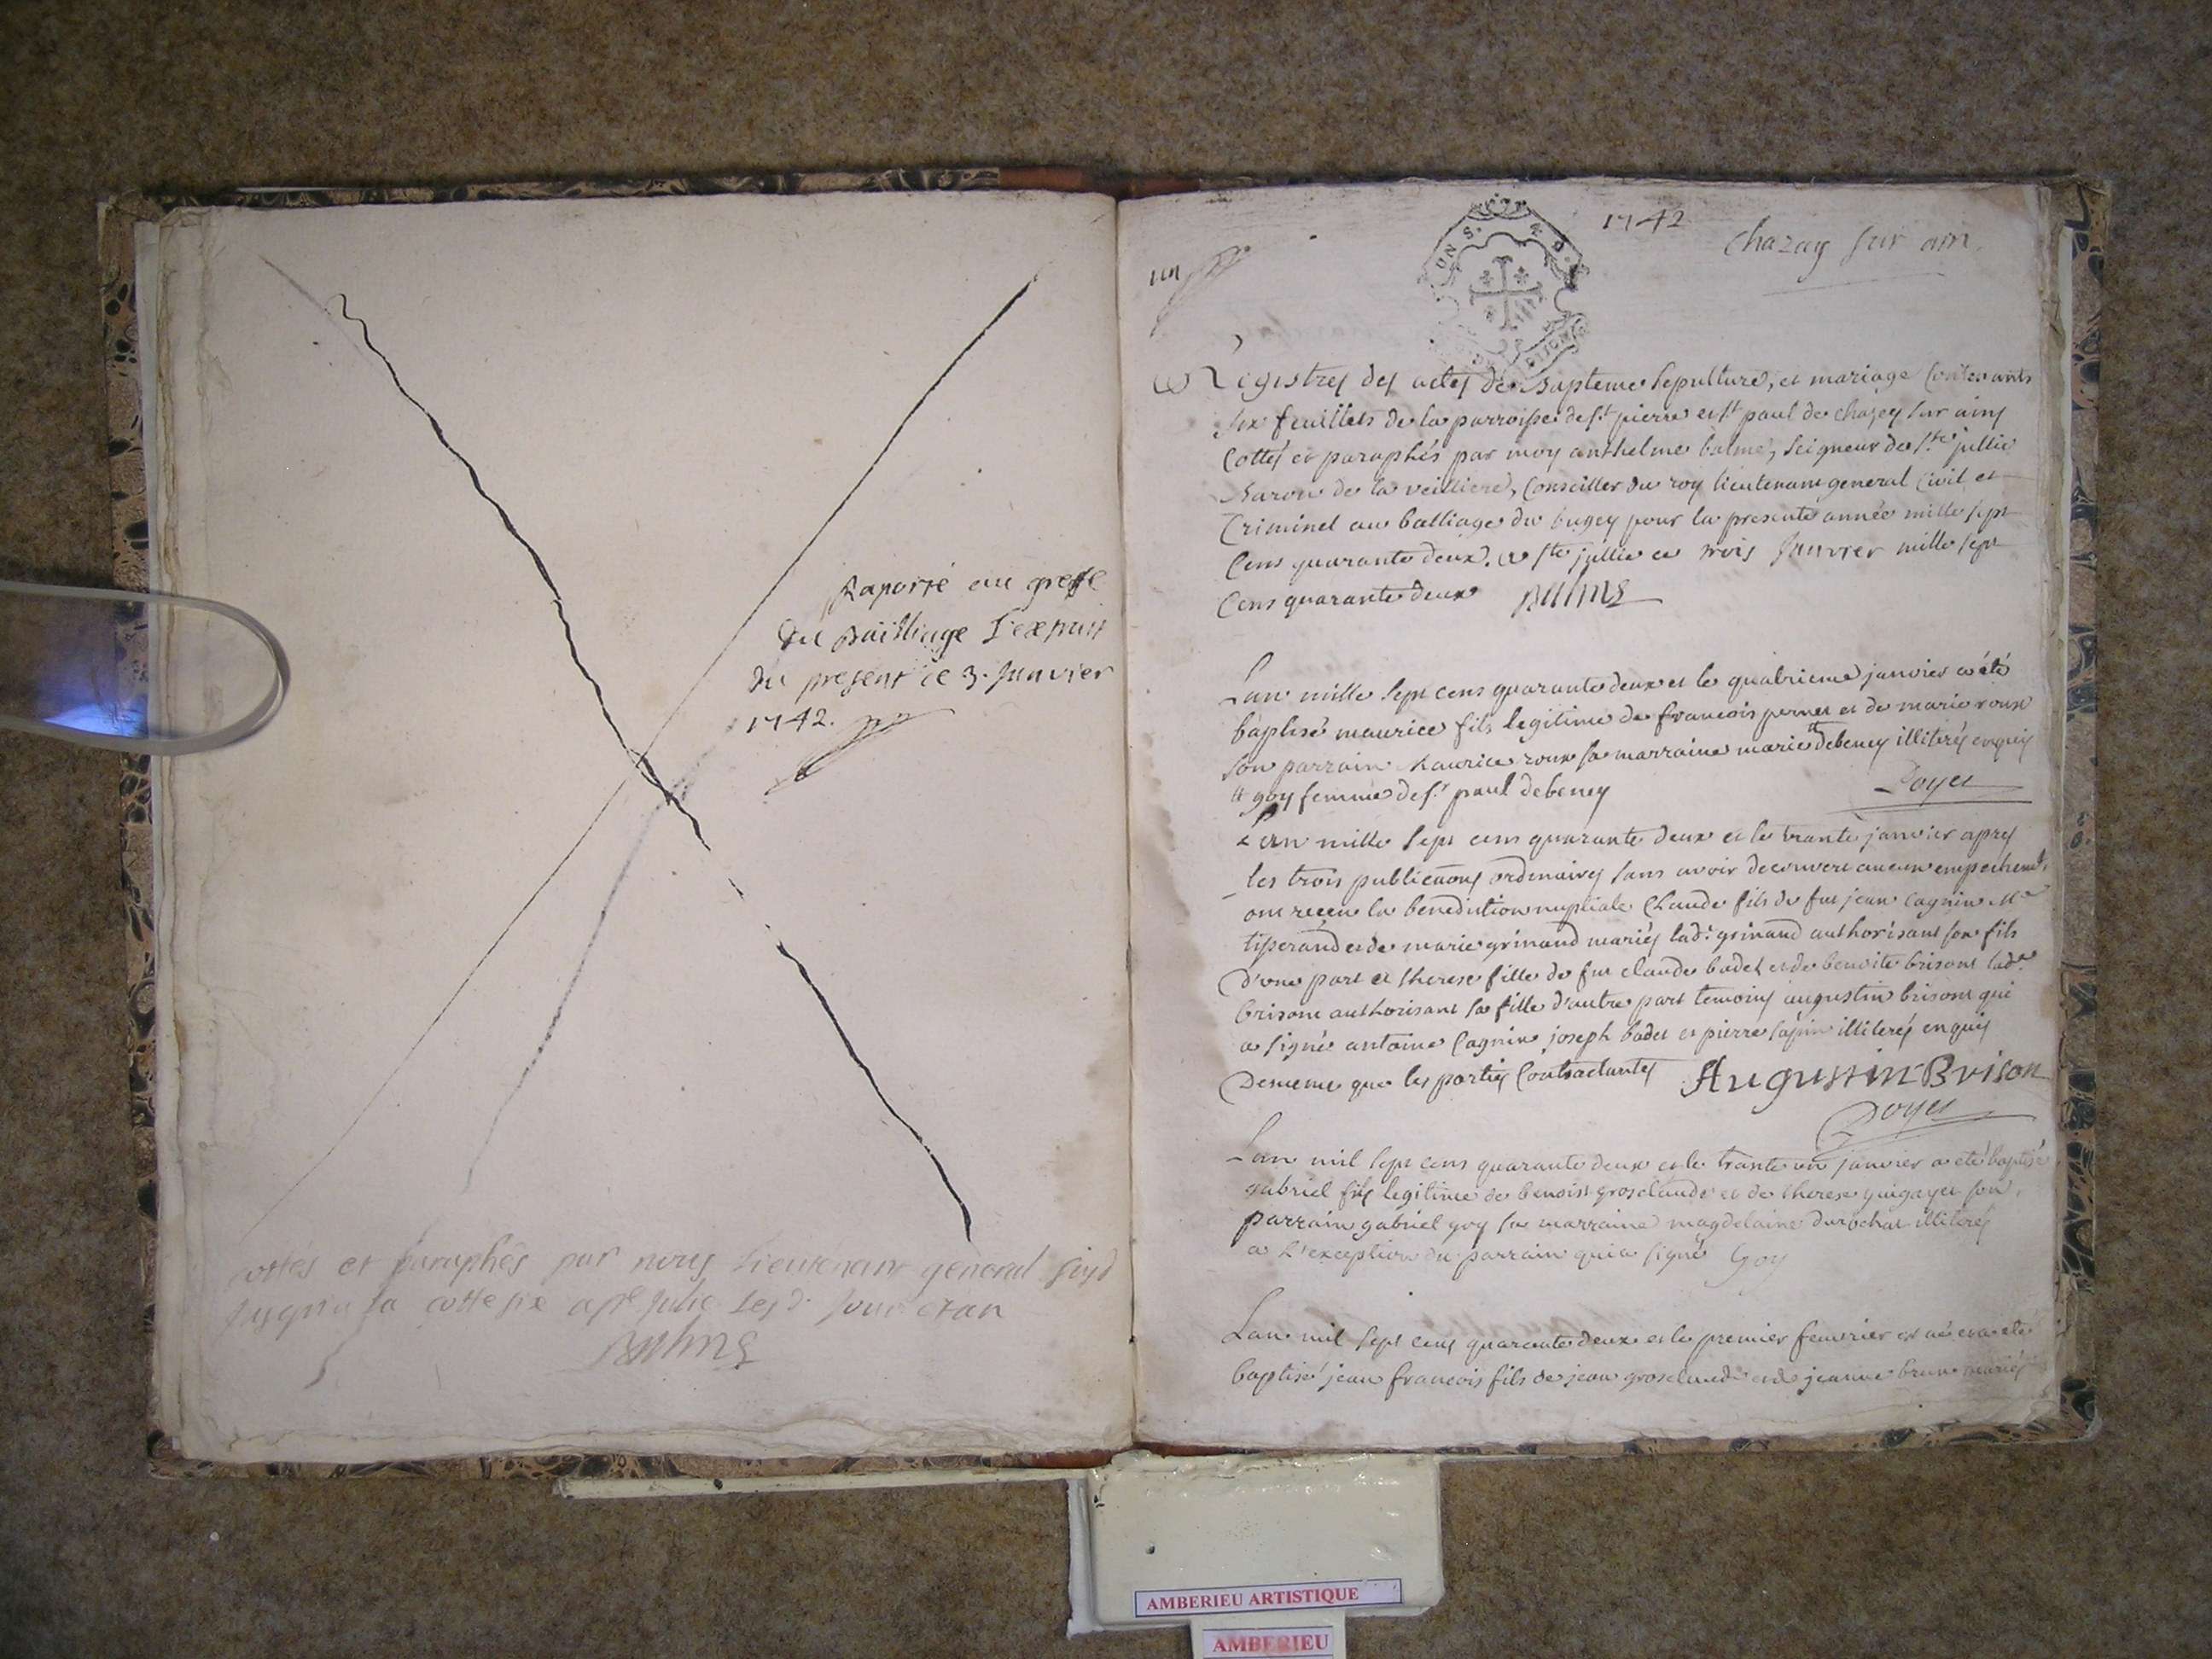 Raporté au greffe
du Bailliage
du present ce 3. Janvier
1742.
cottés et paraphés par nous Lieutenant general
Balme
1742
Chazay sur ain
un
UN S. 4 D.
DIJON
Registres des actes de Bapteme sepulture, et mariage contenants
six feuillets de la parroisse de st pierre et st paul de chazey sur ains
Cottés et paraphés par moy anthelme balme, seigneur de ste jullie
Baron de la veilliere, Conseiller du roy lieutenant general Civil et
Criminel au balliage du bugey pour la presente année mille sept
Cens quarante deux. a ste jullie ce trois Janvier mille sept
Cens quarante deux Balme
Lan mille sept cens quarante deux et le quatrieme janvier a été
baptisé maurice fils legitime de francois pernet et de marie roux
son parrain maurice roux sa marraine marie # debeney illiterés enquis
# goy femme de sr paul debeney Doyet
L'an mille sept cens quarante deux et le trante janvier apres
les trois publications ordinaires sans avoir decouvert aucun empechemt
ont receu la benediction nuptiale Claude fils de fut jean cagnin Me
tisserand et de marie grinand mariés lade grinand authorisant son fils
D'une part et therese fille de fut claude badet et de benoite brisont lade
brisont authorisant sa fille d'autre part temoins augustin brisont qui
a signé antoine Cagnin joseph badet et pierre illiterés enquis
Dememe que les parties Contractantes Augustin Brison
Doyet
Lan mil sept cens quarante deux et le trante un janvier a été baptisé
gabriel fils legitime de benoist grosclaude et de therese guigayet son
parrain gabriel goy sa marraine magdelaine durochat illiterés
a L'exception du parrain qui a signé Goy
Lan mil sept cens quarante deux et le premier feuvrier est né et a eté
baptisé jean francois fils de jean grosclaude et de jeanne brun mariés
AMBERIEU ARTISTIQUE
AMBERIEU